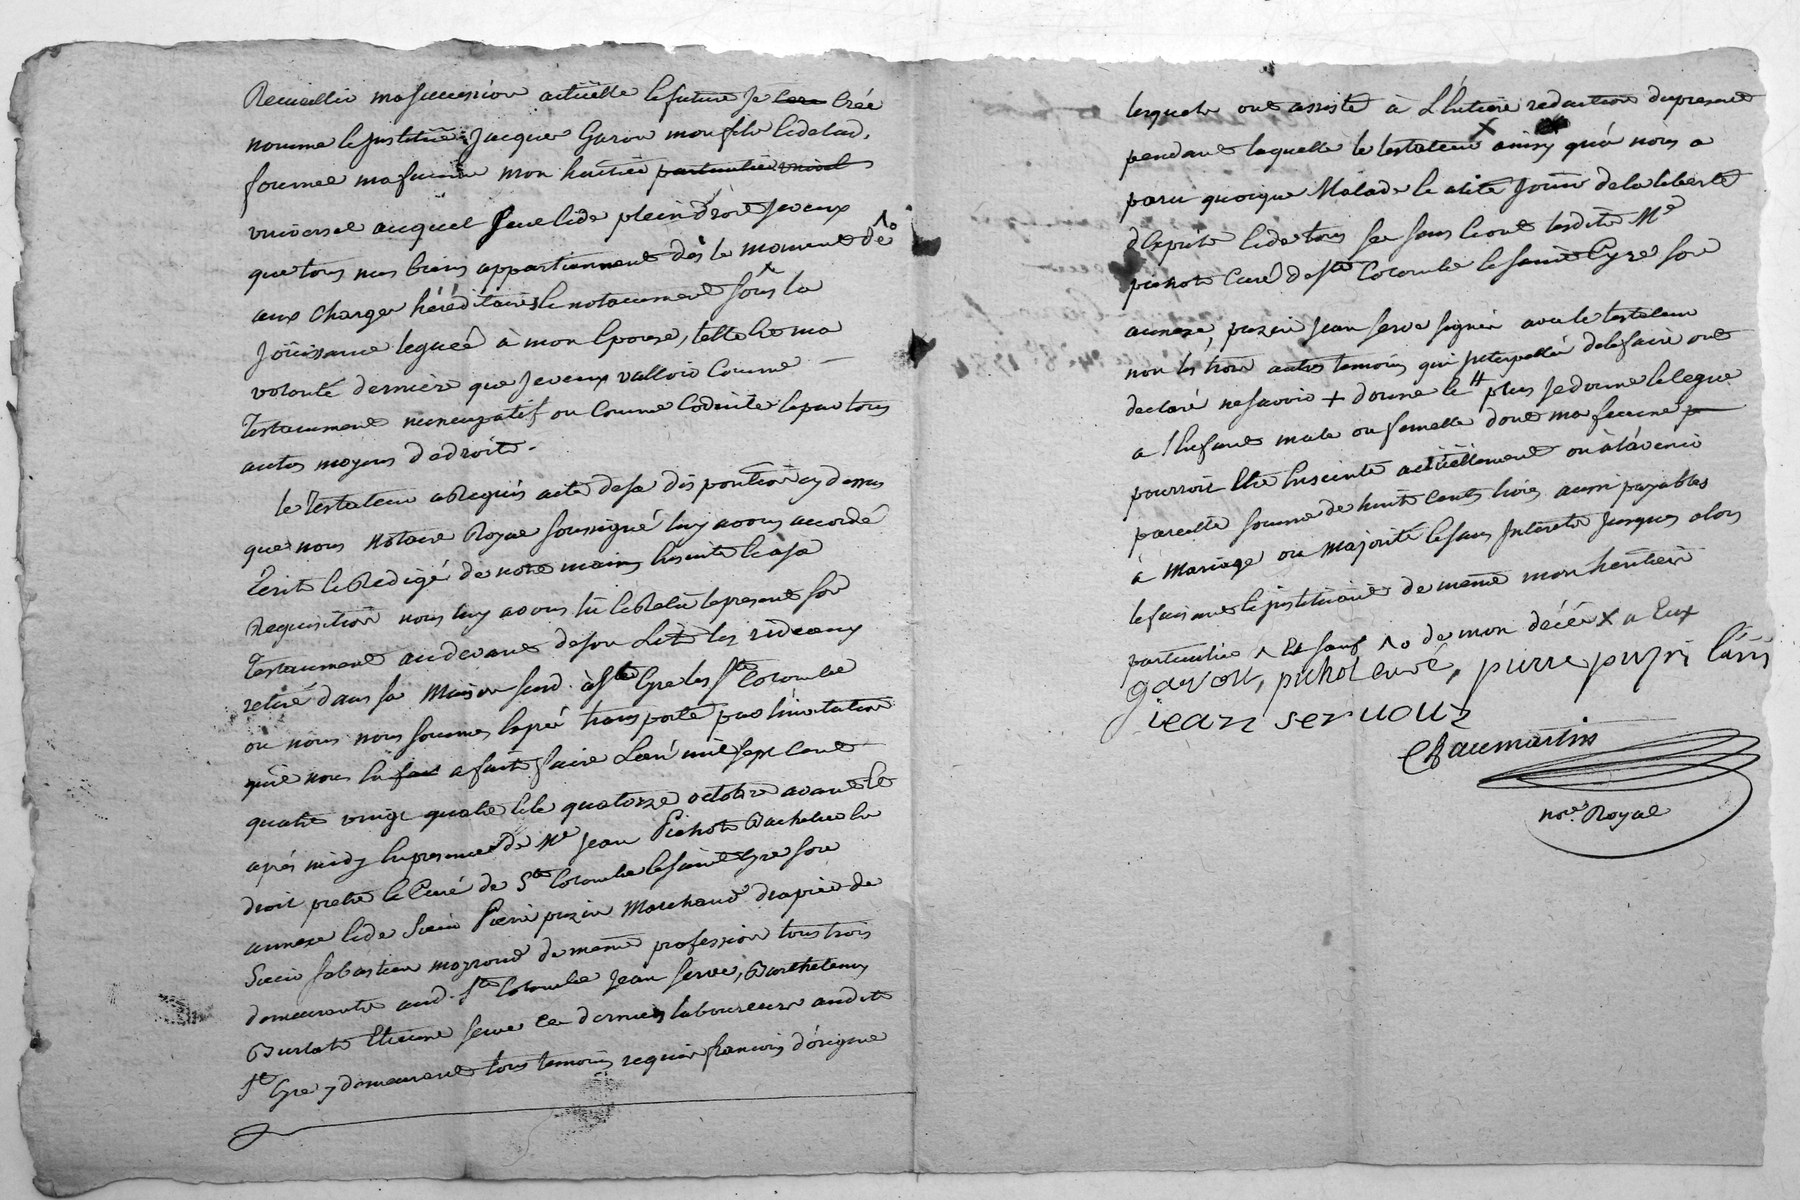 Recueillir ma succession actuelle & future je crée
nomme & institue Jacques Garon mon fils & de lad.
fournel ma femme mon héritier particulier univel
universel auquel seul & de plein droit je veux
que tous mes biens appartiennent dès le moment de
aux charges héréditaires & notamment sous la
Joüissance leguée à mon Epouse, telle est ma
volonté dernière que je veux valloir comme
Testament nuncupatif ou comme Codicile & par tous
autres moyens de droits.
le Testateur a Requis acte de sa disposition cy dessus
que nous notaire Royal soussigné luy avons accordé
Ecrit & Redigé de notre main, Ensuite & a sa
Requisition nous luy avons lû & Relu le present son
Testament au devant de son Lit les rideaux
retiré dans sa Maison sud. à St Cyre les Ste Colombe
ou nous nous sommes Exprès transporté par l'invitation
qu'il nous En fait a fait faire L'an mil sept cent
quatre vingt quatre & le quatorze octobre avant le
après midy En presence de Me Jean Pichot Bachelier En
droit pretre & Curé de Ste Colombe & Saint Cyre son
annexe & de Sieur Pierre puzin Marchand drapier de
Sieur Sabastien mognoud de meme profession tous trois
demeurants aud. Ste Colombe Jean Serve, Barthelemy
Burlat Etienne Serve ces derniers laboureurs audit
St Cyre y demeurant tous temoins requis francois d'origine
lesquels ont assisté à L'Entiere redaction du present
pendant laquelle le testateur ainsy qu'à nous a
paru quoique Malade & alité Jouir de la liberté
d'Esprit & de tous ses sens & ont lesdits Me
pichot Curé de Ste Colombe & Saint Cyre son
annexe, puzin Jean Serve signer avec le testateur
non les trois autres temoins qui Interpellés de le faire ont
declaré ne savoir + donne & # plus Je donne & legue
a l'Enfant male ou femelle dont ma femme
pourroit Etre Enceinte actüellement ou à l'avenir
pareille somme de huit cents livres aussi payables
à Mariage ou Majorité & sans Interets Jusques alors
le faisant & instituant de meme mon heritier
particulier ^ Et sauf ^o de mon décés x a Eux
garon, pichot curé, pierre puzin
jean servouz
Chaumartin
nore. Royal